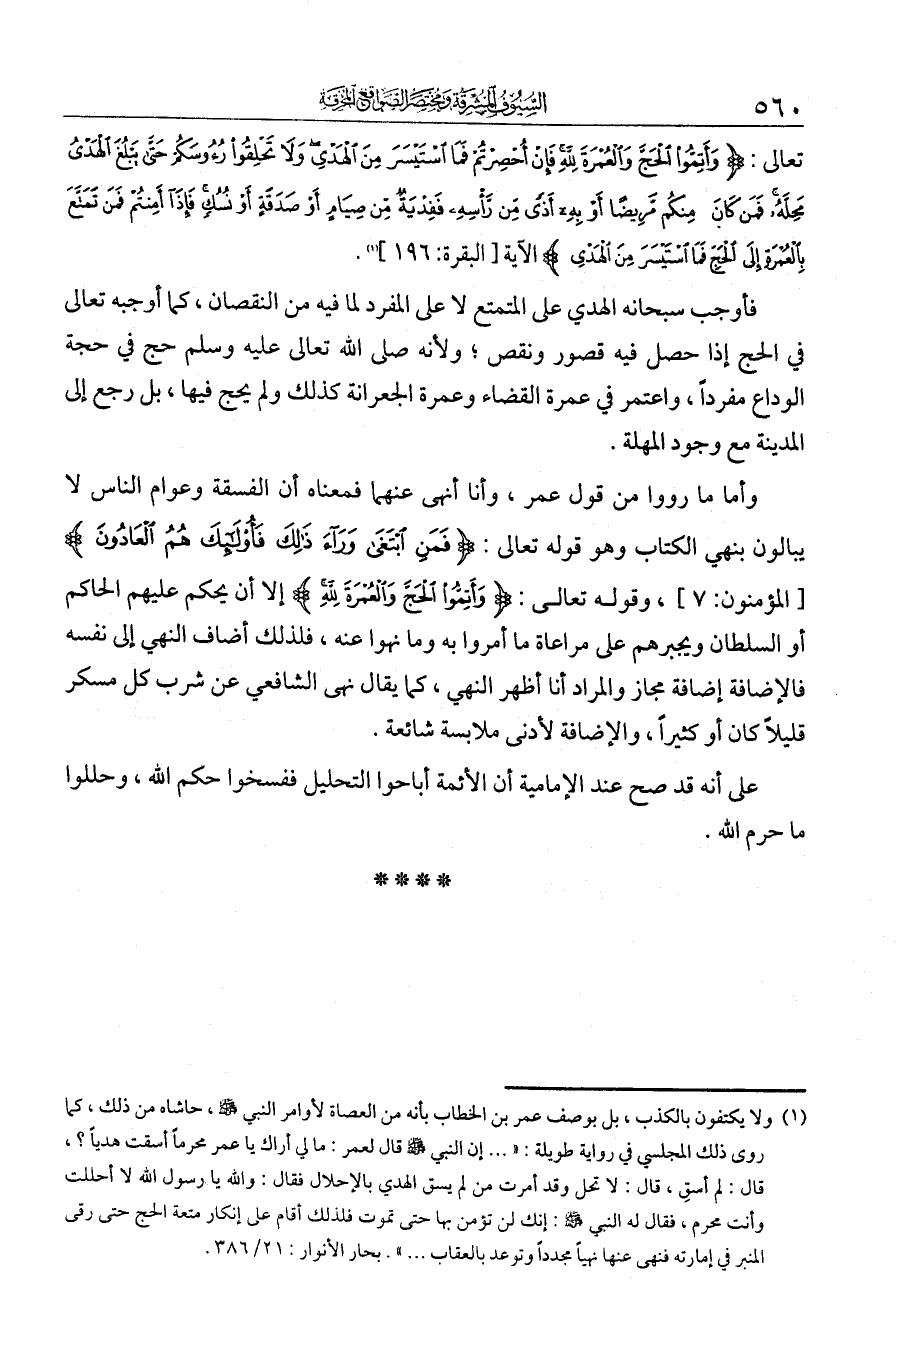 ٥٦٠
السيوف المشرقة ومختصر الصواقع المحرقة
تعالى : ﴿ وَأَتِمُّوا۟ ٱلْحَجَّ وَٱلْعُمْرَةَ لِلَّهِ ۚ فَإِنْ أُحْصِرْتُمْ فَمَا ٱسْتَيْسَرَ مِنَ ٱلْهَدْىِ ۖ وَلَا تَحْلِقُوا۟ رُءُوسَكُمْ حَتَّىٰ يَبْلُغَ ٱلْهَدْىُ
مَحِلَّهُۥ ۚ فَمَن كَانَ مِنكُم مَّرِيضًا أَوْ بِهِۦٓ أَذًى مِّن رَّأْسِهِۦ فَفِدْيَةٌ مِّن صِيَامٍ أَوْ صَدَقَةٍ أَوْ نُسُكٍ ۚ فَإِذَآ أَمِنتُمْ فَمَن تَمَتَّعَ
بِٱلْعُمْرَةِ إِلَى ٱلْحَجِّ فَمَا ٱسْتَيْسَرَ مِنَ ٱلْهَدْىِ ﴾ الآية [ البقرة: ١٩٦ ]⁽¹⁾ .
فأوجب سبحانه الهدي على المتمتع لا على المفرد لما فيه من النقصان ، كما أوجبه تعالى
في الحج إذا حصل فيه قصور ونقص ؛ ولأنه صلى الله تعالى عليه وسلم حج في حجة
الوداع مفرداً ، واعتمر في عمرة القضاء وعمرة الجعرانة كذلك ولم يحج فيها ، بل رجع إلى
المدينة مع وجود المهلة .
وأما ما رووا من قول عمر ، وأنا أنهى عنهما فمعناه أن الفسقة وعوام الناس لا
يبالون بنهي الكتاب وهو قوله تعالى : ﴿ فَمَنِ ٱبْتَغَىٰ وَرَآءَ ذَٰلِكَ فَأُو۟لَٰٓئِكَ هُمُ ٱلْعَادُونَ ﴾
[ المؤمنون: ٧ ] ، وقوله تعالى : ﴿ وَأَتِمُّوا۟ ٱلْحَجَّ وَٱلْعُمْرَةَ لِلَّهِ ۚ ﴾ إلا أن يحكم عليهم الحاكم
أو السلطان ويجبرهم على مراعاة ما أمروا به وما نهوا عنه ، فلذلك أضاف النهي إلى نفسه
فالإضافة إضافة مجاز والمراد أنا أظهر النهي ، كما يقال نهى الشافعي عن شرب كل مسكر
قليلاً كان أو كثيراً ، والإضافة لأدنى ملابسة شائعة .
على أنه قد صح عند الإمامية أن الأئمة أباحوا التحليل ففسخوا حكم الله ، وحللوا
ما حرم الله .
****
(١) ولا يكتفون بالكذب ، بل بوصف عمر بن الخطاب بأنه من العصاة لأوامر النبي ﷺ ، حاشاه من ذلك ، كما
روى ذلك المجلسي في رواية طويلة : « ... إن النبي ﷺ قال لعمر : ما لي أراك يا عمر محرماً أسقت هدياً ؟ ،
قال : لم أسق ، قال : لا تحل وقد أمرت من لم يسق الهدي بالإحلال فقال : والله يا رسول الله لا أحللت
وأنت محرم ، فقال له النبي ﷺ : إنك لن تؤمن بها حتى تموت فلذلك أقام على إنكار متعة الحج حتى رقى
المنبر في إمارته فنهى عنها نهياً مجدداً وتوعد بالعقاب ... » . بحار الأنوار : ٢١/ ٣٨٦ .